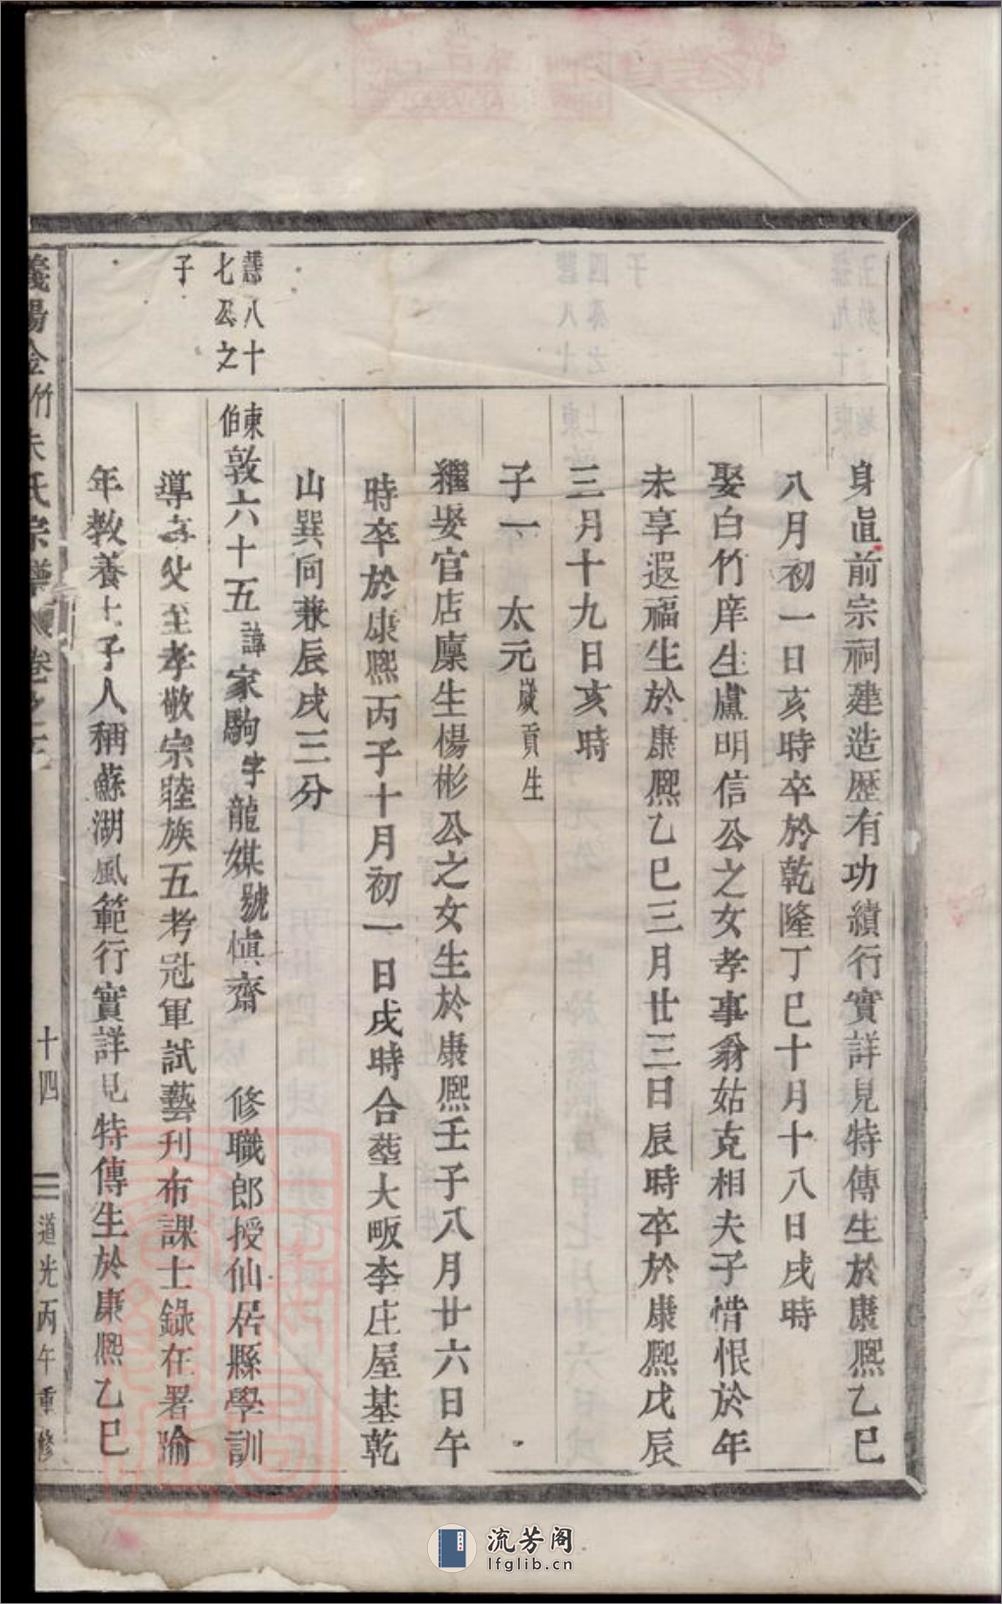 身直前宗祠建造歷有功績行實詳見特傳生於康熙乙巳
八月初一日亥時卒於乾隆丁巳十月十八日戌時
娶白竹庠生盧明信公之女孝事翁姑克相夫子惜恨於年
未享遐福生於康熙乙巳三月廿三日辰時卒於康熙戊辰
三月十九日亥時
子一 太元歲貢生
繼娶官店廩生楊彬公之女生於康熙壬子八月廿六日午
時卒於康熙丙子十月初一日戌時合塟大畈李庄屋基乾
山巽向兼辰戌三分
八十
七公之
子
東伯敦六十五諱家駒字龍媒號慎齋 修職郎授仙居縣學訓
導喜父至孝敬宗睦族五考冠軍試藝刊布課士錄在署喻
年教養士子人稱蘇湖風範行實詳見特傳生於康熙乙巳
義陽金竹朱氏宗譜 卷之二 十四 道光丙午重修
流芳阁
lfglib.cn